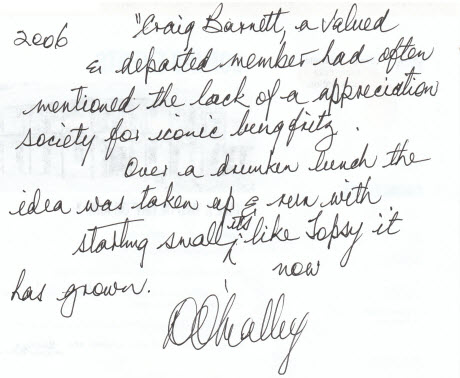 2006 "Craig Barnett, a valued
& departed member had often
mentioned the lack of a appreciation
society for iconic bungfritz.
Over a drunken lunch the
idea was taken up & run with.
starting small its like Topsy it
now
has grown.